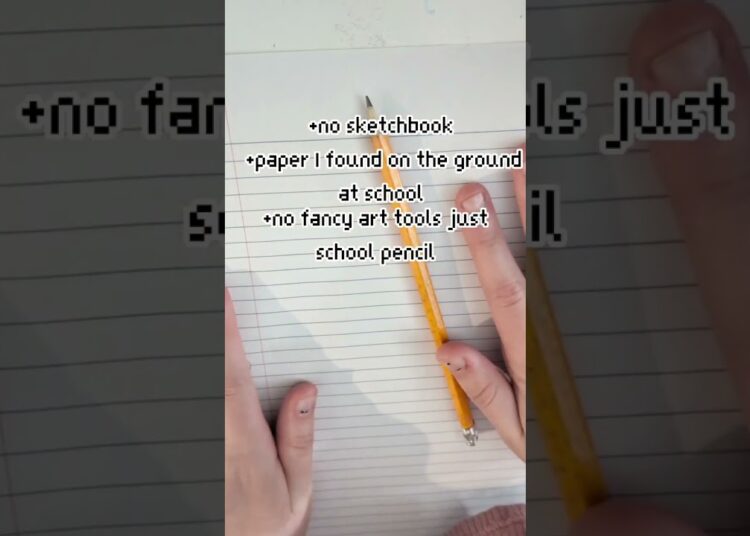 +no sketchbook
+paper I found on the ground
at school
+no fancy art tools just
school pencil